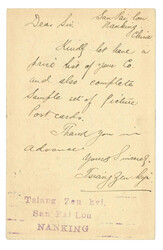 San Pai Lou
Nanking
China
Dear Sir
Kindly let have a
price list of your Co.
and also complete
Sample set of Picture
Post cards.
Thank you in
advance
Yours Sincerely,
Tsiang Zen
Tsiang Zen kei,
San Pai Lou
NANKING